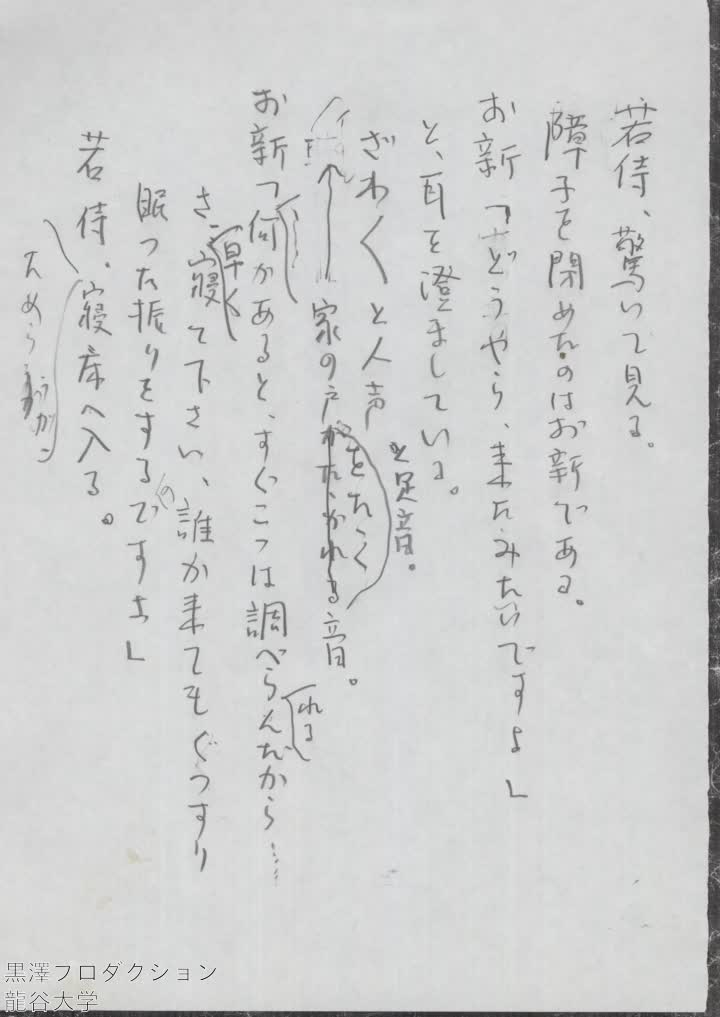 若侍、驚いて見る。
障子を閉めたのはお新である。
お新「どうやら、来たみたいですよ」
と、耳を澄ましている。
ざわ〱と人声
と足音。
家の戸がたゝかれる音。
をたゝく
お新「何かあると、すぐこつは調べらんだから……
れる
さ、寝て下さい、誰か来てもぐつすり
早く
眠つた振りをするですよ」
の
若侍、寝床へ入る。
ためら
黒澤プロダクション
龍谷大学